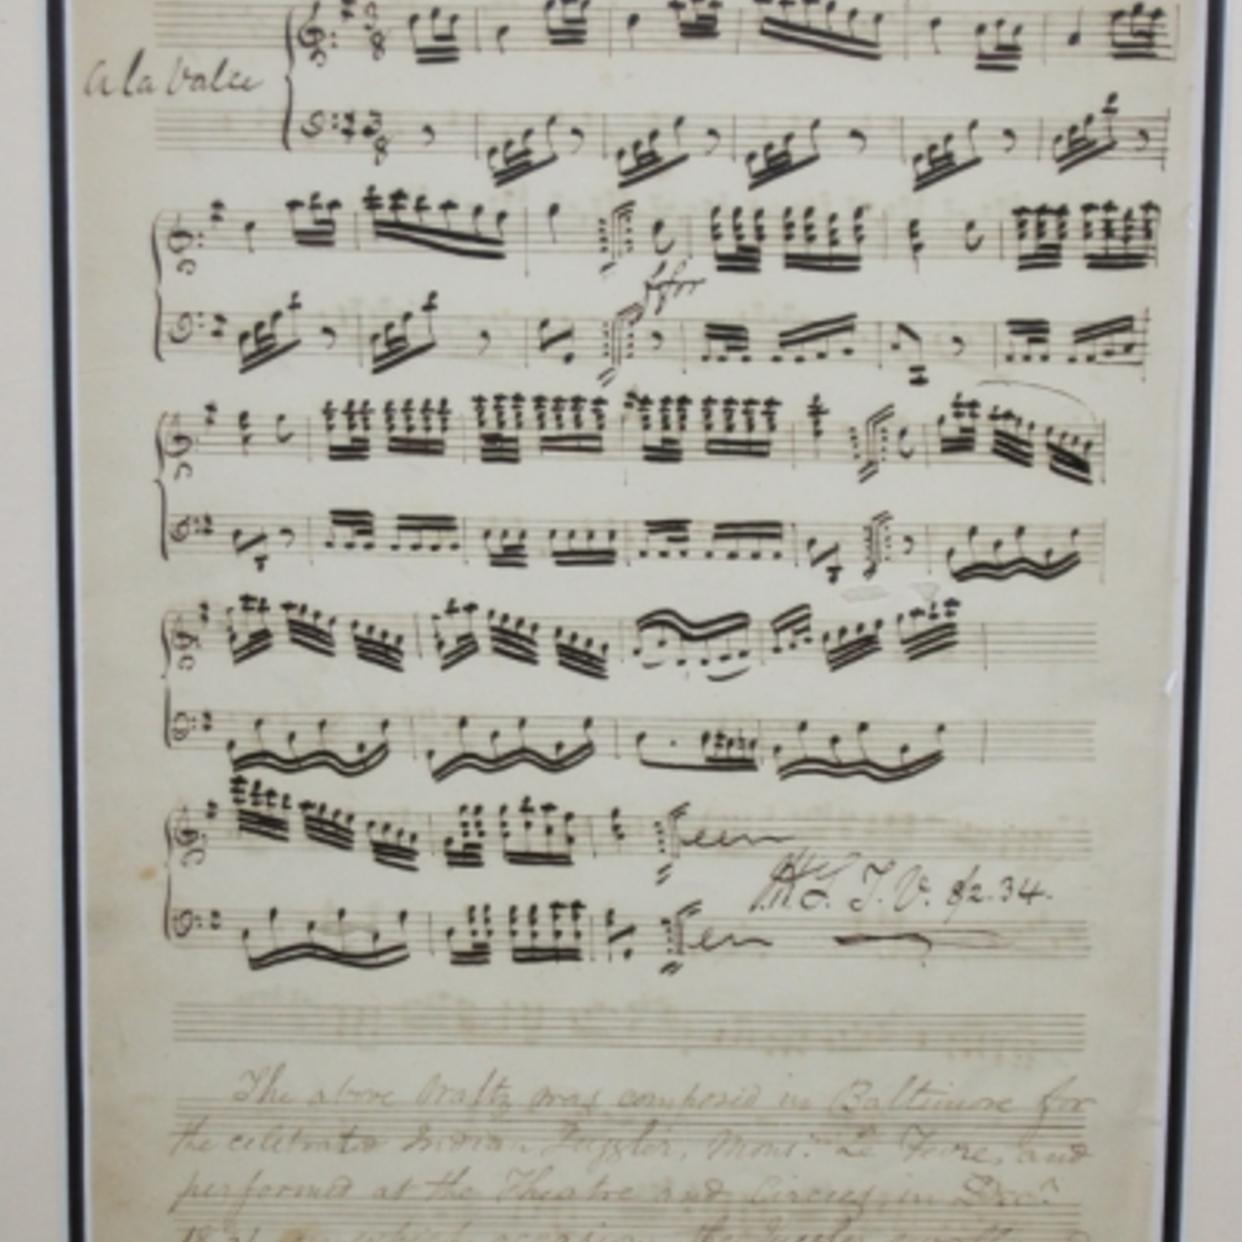 a la Valce
ffor
T. V. 82.34.
The above Waltz was composed in Baltimore for
the celebrated Indian Juggler, Mons.r Le Fevre, and
performed at the Theatre and Circus, in Dec.r
on which occasion the Juggler